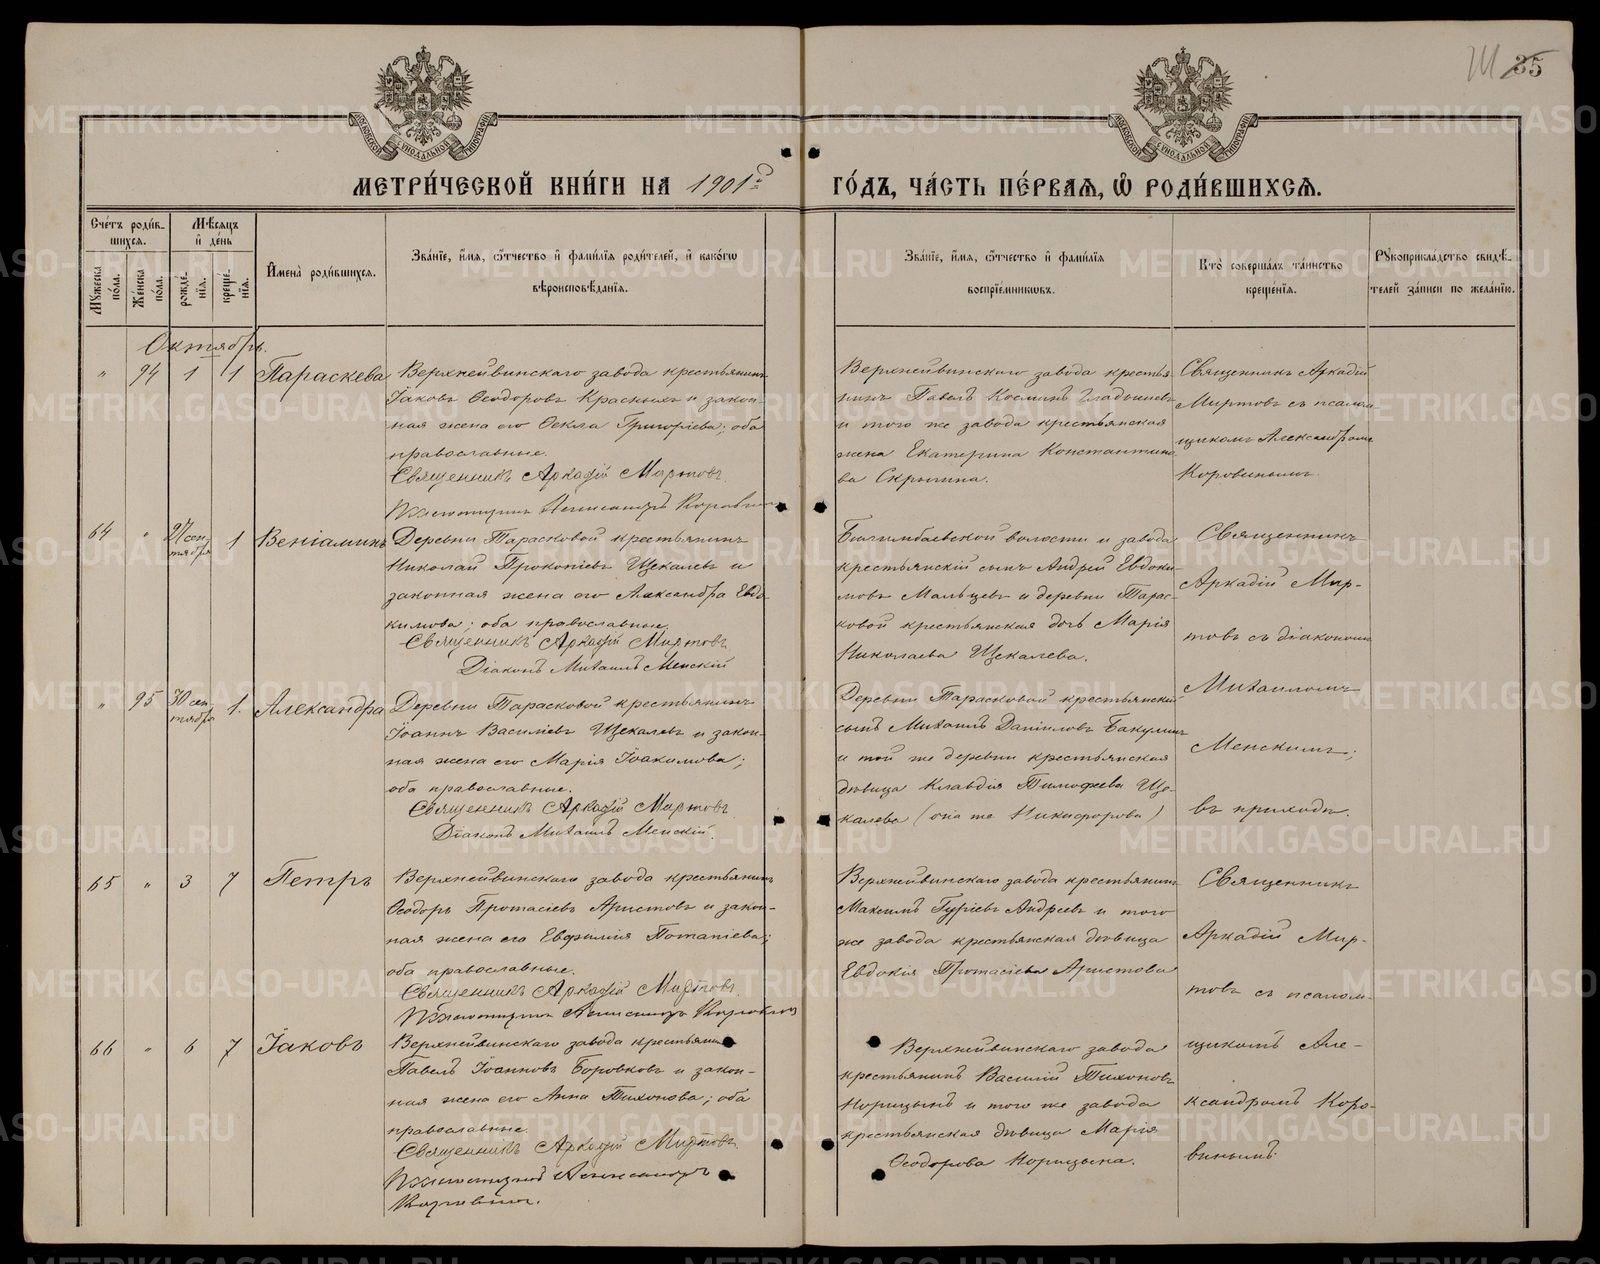 35
МЕТРИ́ЧЕСКОЙ КНИ́ГИ НА 1901й
ГО́ДЪ, ЧА́СТЬ ПЕ́РВАѦ, Ѽ РОДИ́ВШИХСѦ.
Сче́тъ роди́в-
шихсѧ.
Мꙋжеска по́ла.
Же́нска по́ла.
Мѣ́сѧцъ
и҆ де́нь
рожде́нїѧ.
креще́нїѧ.
И҆мена̀ роди́вшихсѧ.
Зва́нїе, и҆́мѧ, ѻ҆́тчество и҆ фами́лїѧ роди́телей, и҆ како́гѡ
вѣроисповѣ́данїѧ.
Зва́нїе, и҆́мѧ, ѻ҆́тчество и҆ фами́лїѧ
воспрїе́мникѡвъ.
Кто̀ соверша́лъ та́инство
креще́нїѧ.
Рꙋкоприкла́дство свидѣ́-
телей за́писи по жела́нїю.
Октябрь.
" 94 1 1 Параскева
Верхнейвинскаго завода крестьянинъ
Іаковъ Ѳеодоровъ Красныхъ и закон-
ная жена его Ѳекла Григоріева; оба
православные.
Священникъ Аркадій Миртовъ.
Верхнейвинскаго завода крестья-
нинъ Павелъ Косминъ Гладышевъ
и того же завода крестьянская
жена Екатерина Константино-
ва Скрыпина.
Священникъ Аркадій
Миртовъ съ псалом-
щикомъ Александромъ
Коровинымъ.
64 " 27 сен- 1 Веніаминъ
тября
Деревни Тарасковой крестьянинъ
Николай Прокопіевъ Щекалевъ и
законная жена его Александра Евдо-
кимова; оба православные.
Священникъ Аркадій Миртовъ
Діаконъ Михаилъ Менскій
Билимбаевской волости и завода
крестьянскій сынъ Андрей Евдоки-
мовъ Мальцевъ и деревни Тарас-
ковой крестьянская дочь Марія
Николаева Щекалева.
Священникъ
Аркадій Мир-
товъ съ діакономъ
Михаиломъ
Менскимъ;
въ приходѣ.
" 95 30 сен- 1. Александра
тября
Деревни Тарасковой крестьянинъ
Іоаннъ Василіевъ Щекалевъ и закон-
ная жена его Марія Іоакимова;
оба православные.
Священникъ Аркадій Миртовъ
Діаконъ Михаилъ Менскій.
Деревни Тарасковой крестьянскій
сынъ Михаилъ Даніиловъ Бакулинъ
и той же деревни крестьянская
дѣвица Клавдія Тимофеева Ще-
калева (она же Никифорова)
65 " 3 7 Петръ
Верхнейвинскаго завода крестьянинъ
Ѳеодоръ Протасіевъ Аристовъ и закон-
ная жена его Евфимія Потапіева;
оба православные.
Священникъ Аркадій Миртовъ.
Верхнейвинскаго завода крестьянинъ
Максимъ Гуріевъ Андреевъ и того
же завода крестьянская дѣвица
Евдокія Протасіева Аристова
Священникъ
Аркадій Мир-
товъ съ псалом-
щикомъ Але-
ксандромъ Коро-
винымъ.
66 " 6 7 Іаковъ
Верхнейвинскаго завода крестьянинъ
Павелъ Іоанновъ Боровковъ и закон-
ная жена его Анна Тихонова; оба
православные.
Священникъ Аркадій Миртовъ.
Верхнейвинскаго завода
крестьянинъ Василій Тихоновъ
Норицынъ и того же завода
крестьянская дѣвица Марія
Ѳеодорова Норицына.
METRIKI.GASO-URAL.RU